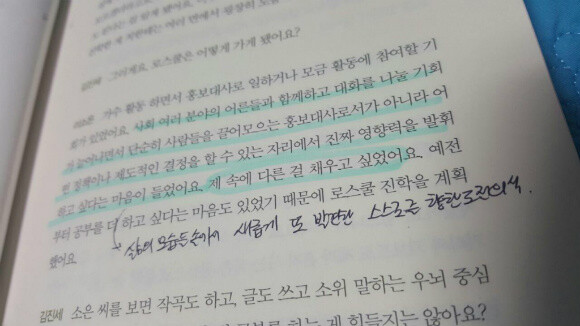 김진세 그러게요. 로스쿨은 어떻게 가게 됐어요?
가수 활동 하면서 홍보대사로 일하거나 모금 활동에 참여할 기
회가 있었어요. 사회 여러 분야의 어른들과 함께하고 대화를 나눌 기회
가 늘어나면서 단순히 사람들을 끌어모으는 홍보대사로서가 아니라 어
떤 정책이나 제도적인 결정을 할 수 있는 자리에서 진짜 영향력을 발휘
하고 싶다는 마음이 들었어요. 제 속에 다른 걸 채우고 싶었어요. 예전
부터 공부를 더 하고 싶다는 마음도 있었기 때문에 로스쿨 진학을 계획
했어요.
새롭게 또 스스로를 향한 도전의식.
김진세 소은 씨를 보면 작곡도 하고, 글도 쓰고 소위 말하는 우뇌 중심
하는 게 힘들지는 않아요?